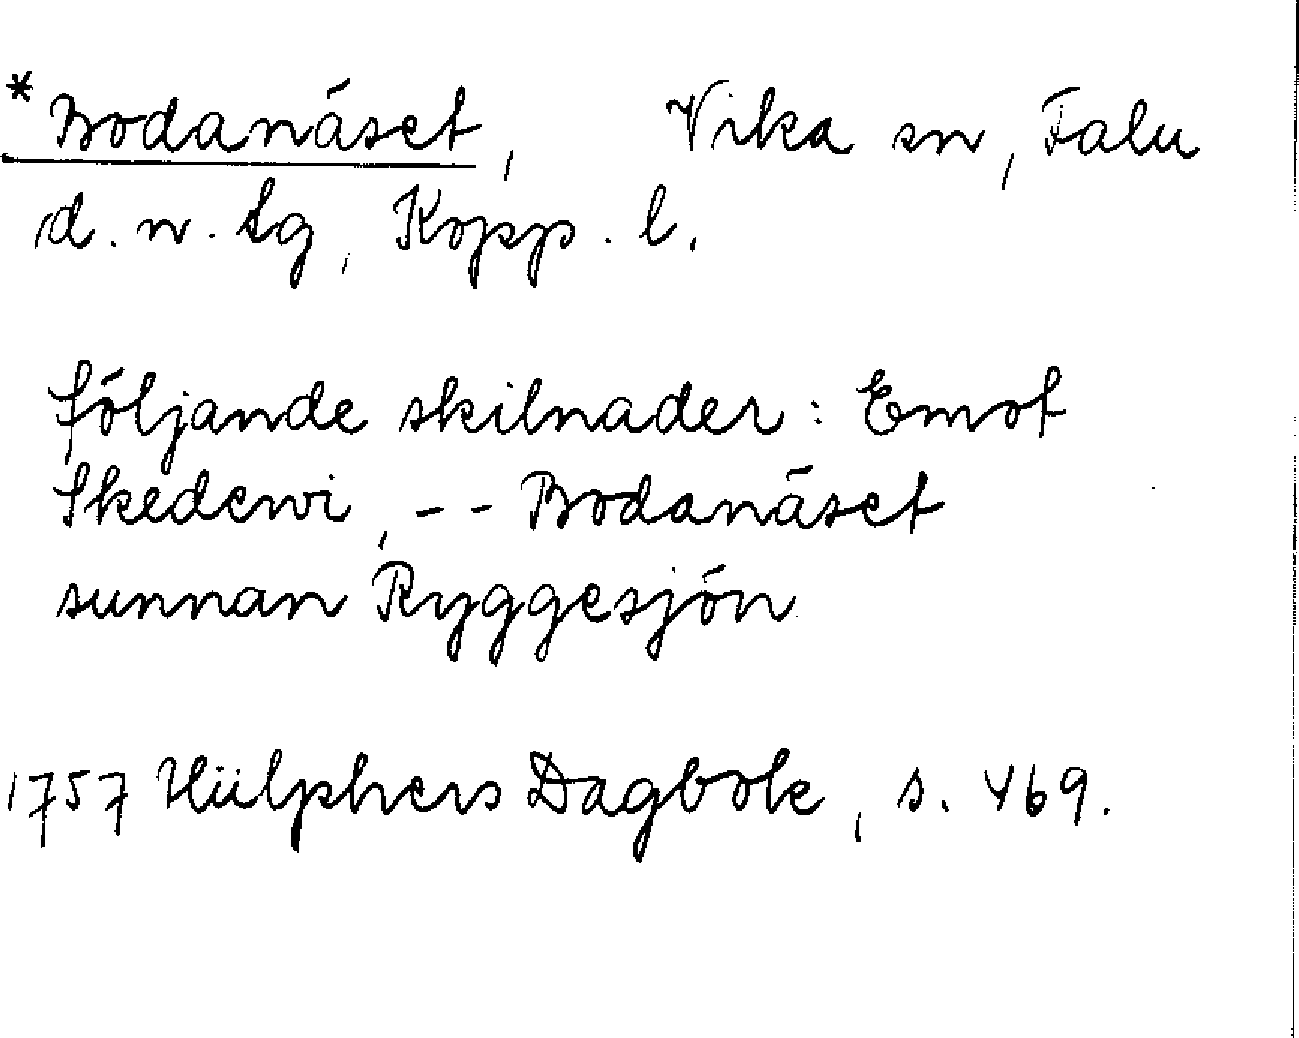 *Bodanäset, Vika sn, Falu
d. n. tg, Kopp. l.
följande skilnader: Emot
Skedewi, -- Bodanäset
sunnan Ryggesjön
1757 Hülphers Dagbok, s. 469.